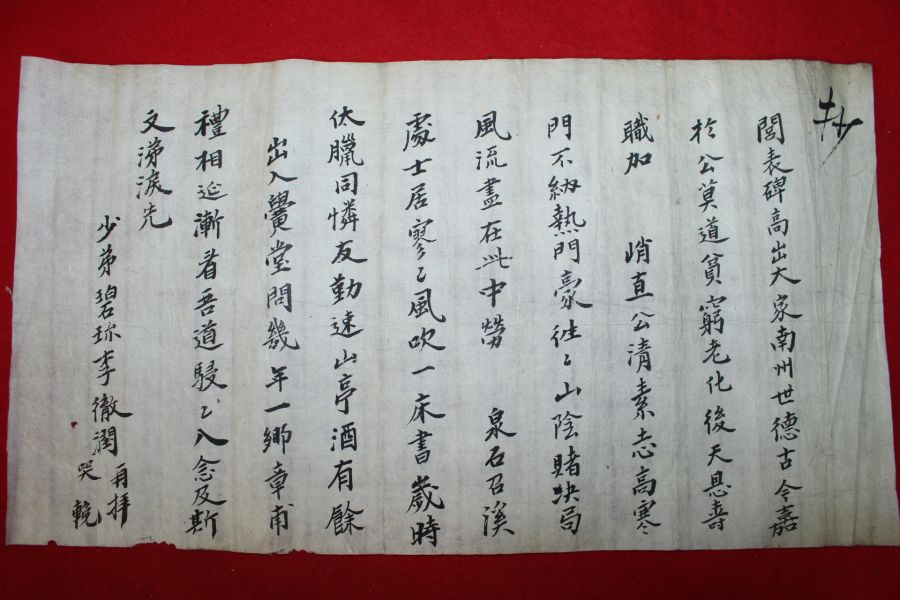 抄
閭表碑高出大家南州世德古今嘉
於公莫道貧窮老化後天恩壽
職加 峭直公淸素志高寒
門不納熱門豪徃〻山陰賭块局
風流盡在此中勞 泉石召溪
處士居寥〻風吹一床書歲時
伏臘同憐友勤速山亭酒有餘
出入黌堂問幾年一鄕章甫
禮相延漸看吾道駸〻入念及斯
文涕淚先
少弟碧珎李徹潤 再拜
哭輓